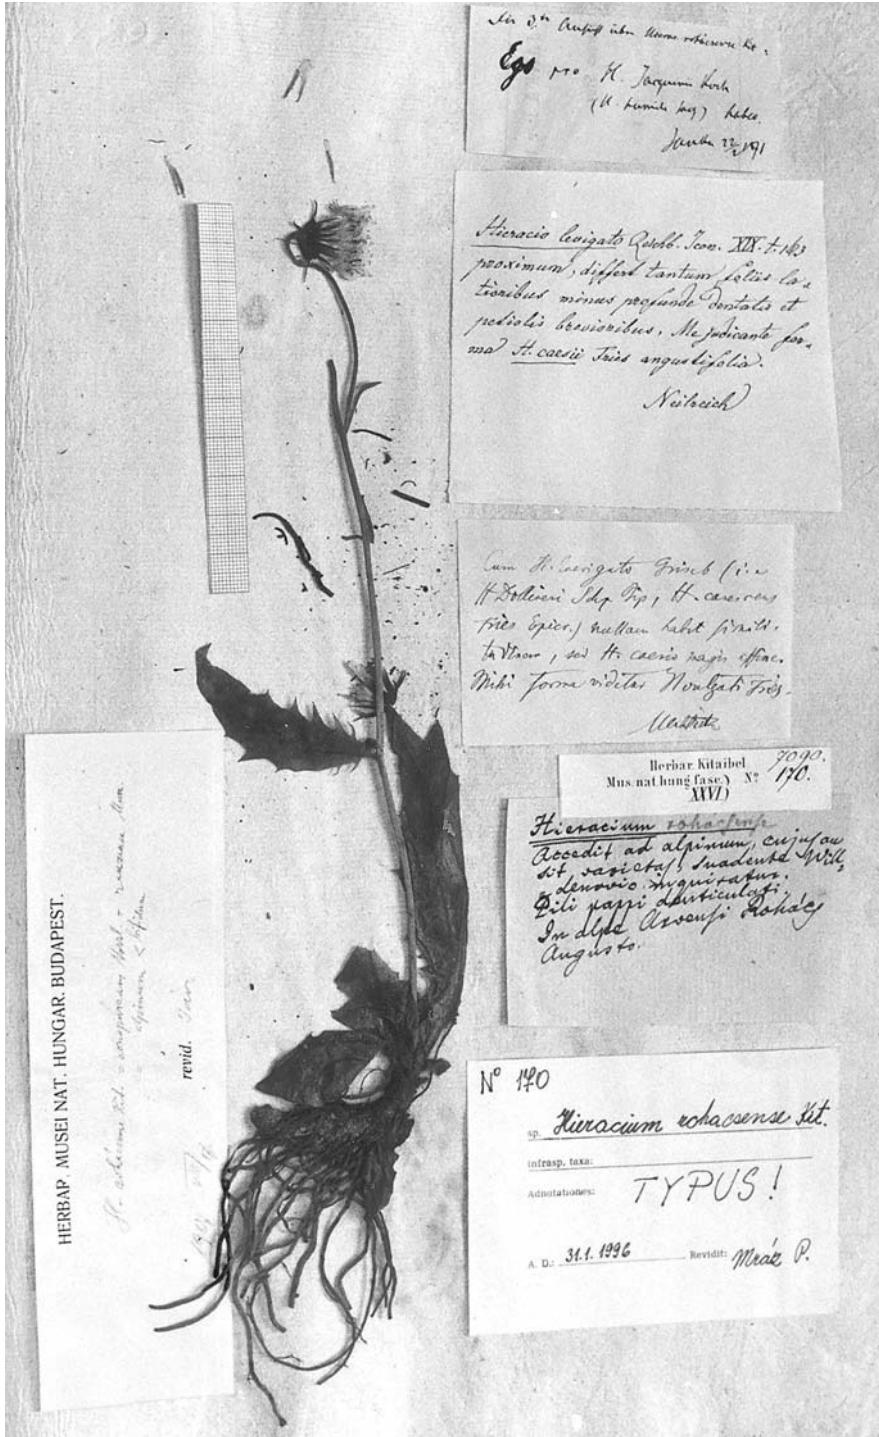 Ego pro H. Jacquini Koch
(H. humile Jacq) habeo.
Janka
Hieracio levigato Rchb. Icon. XIX. t. 163
proximum, differt tantum foliis la-
tioribus minus profunde dentatis et
petiolis brevioribus. Me judicante for-
ma H. caesii Fries angustifolia.
Neilreich
Cum H. laevigato Griseb (i. e
H Dollineri Schp
Fries Epicr.) nullam habet simili-
tudinem, sed H. caesio magis affine.
Mihi forma videtur H vulgati Fries.
Herbar. Kitaibel 7090.
Mus. nat. hung. fasc. Nº 170.
XXVI)
Hieracium rohácsense
Accedit ad alpinum, cujus an
sit varietas, suadente Will-
denovio inquiratur.
Pili pappi denticulati.
In alpe Arvensi Rohács
Augusto.
Nº 170
sp. Hieracium rohacsense Kit.
infrasp. taxa:
Adnotationes: TYPUS!
A. D.: 31.1.1996 Revidit: Mráz P.
HERBAR. MUSEI NAT. HUNGAR. BUDAPEST.
alpinum < bifidum
revid.